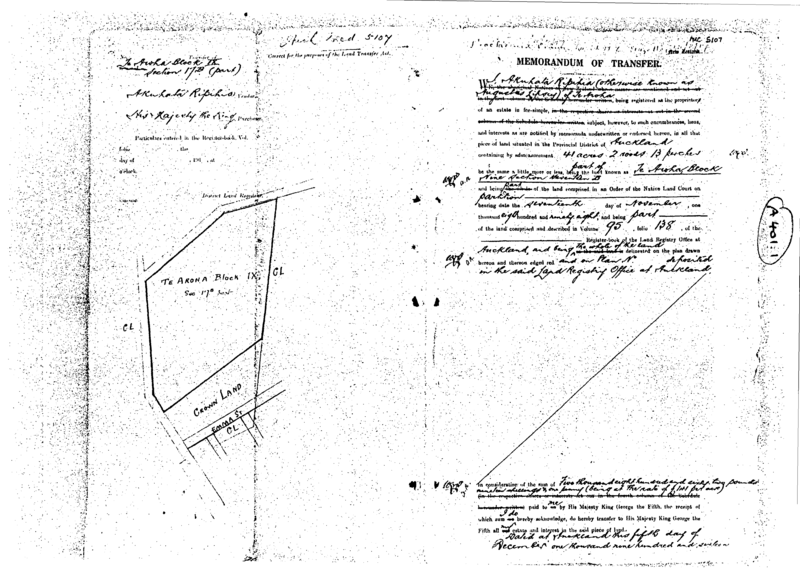 Te Aroha Block IX
Section 17B (part)
Akuhata Ripihia Vendor
His Majesty the King, Purchaser
Particulars entered in the Register-book, Vol.
folio , the
day of , 191 , at
o'clock.
District Land Registrar
5107
Correct for the purposes of the Land Transfer Act.
TE AROHA BLOCK IX
Sec 17B part
CL
CL
CROWN LAND
CL
5107
MEMORANDUM OF TRANSFER.
I, Akuhata Ripihia (otherwise known as
of Te Aroha
being registered as the proprietor
of an estate in fee-simple,
subject, however, to such encumbrances, liens,
and interests as are notified by memoranda underwritten or endorsed hereon, in all that
piece of land situated in the Provincial District of Auckland
containing by admeasurement 41 acres 2 roods 13 perches
part of
be the same a little more or less, being the land known as Te Aroha Block
Nine Section Seventeen B
and being part of the land comprised in an Order of the Native Land Court on
partition
bearing date the seventeenth day of November, one
thousand eight hundred and ninety eight, and being part
of the land comprised and described in Volume 95, folio 138, of the
Register-book of the Land Registry Office at
Auckland, and being the
delineated on the plan drawn
hereon and thereon edged red and on Plan No. deposited
in the said Land Registry Office at Auckland
A 401:1
In consideration of the sum of Two thousand eight hundred and sixty two pounds
paid to me by His Majesty King George the Fifth, the receipt of
which sum I do hereby acknowledge, do hereby transfer to His Majesty King George the
Fifth all my estate and interest in the said piece of land.
Dated at Auckland this fifth day of
December one thousand nine hundred and